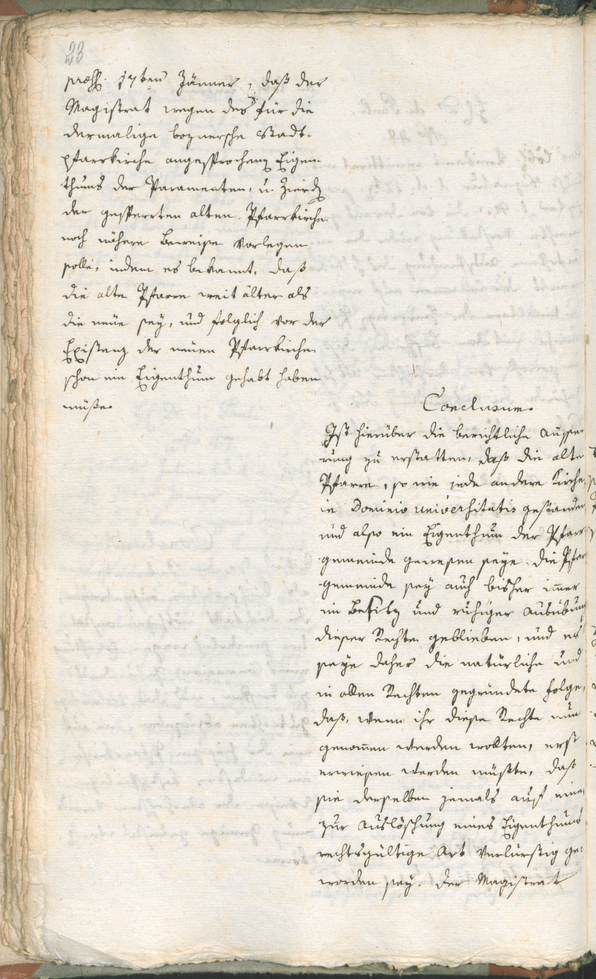 23
præs. 17ten Jänner, daß der
Magistrat wegen des für die
dermalige boznersche Stadt-
pfarrkirche angesprochenen Eigen-
thums der Paramenten, u. Zierd
der gesperrten alten Pfarrkirche
noch nähere Beweise vorlegen
solle, indem es bekannt, daß
die alte Pfarre weit älter als
die neue sey, und folglich vor der
Existenz der neuen Pfarrkirche
schon ein Eigenthum gehabt haben
müße.
Conclusum.
Ist hierüber die berichtliche Äusse-
rung zu erstatten, daß die alte
Pfarre, so wie jede andere Kirche
in Dominio universitatis gestanden
und also ein Eigenthum der Pfarr-
gemeinde gewesen seye. Die Pfarr
gemeinde sey auch bisher immer
im Besitz und ruhiger Ausübung
dieser Rechte geblieben, und es
seye daher die natürliche und
in allen Rechten gegründete Folge,
daß, wenn ihr diese Rechte nun
genommen werden wollten, erst
erwiesen werden müßte, daß
sie derselben jemals auf eine
zur Auslöschung eines Eigenthums
rechtsgültige Art verlurstig ge-
worden sey. Der Magistrat